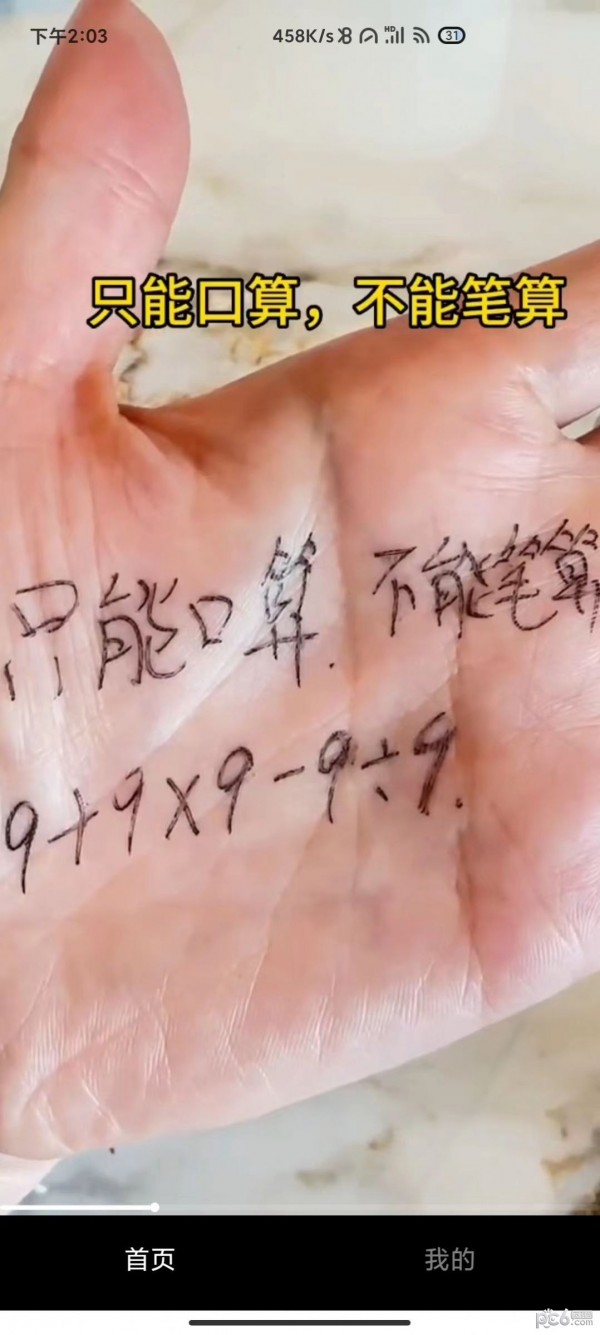 下午2:03 458K/s HD 31
只能口算，不能笔算
只能口算. 不能笔算
9+9×9-9÷9.
首页 我的
pc6.com